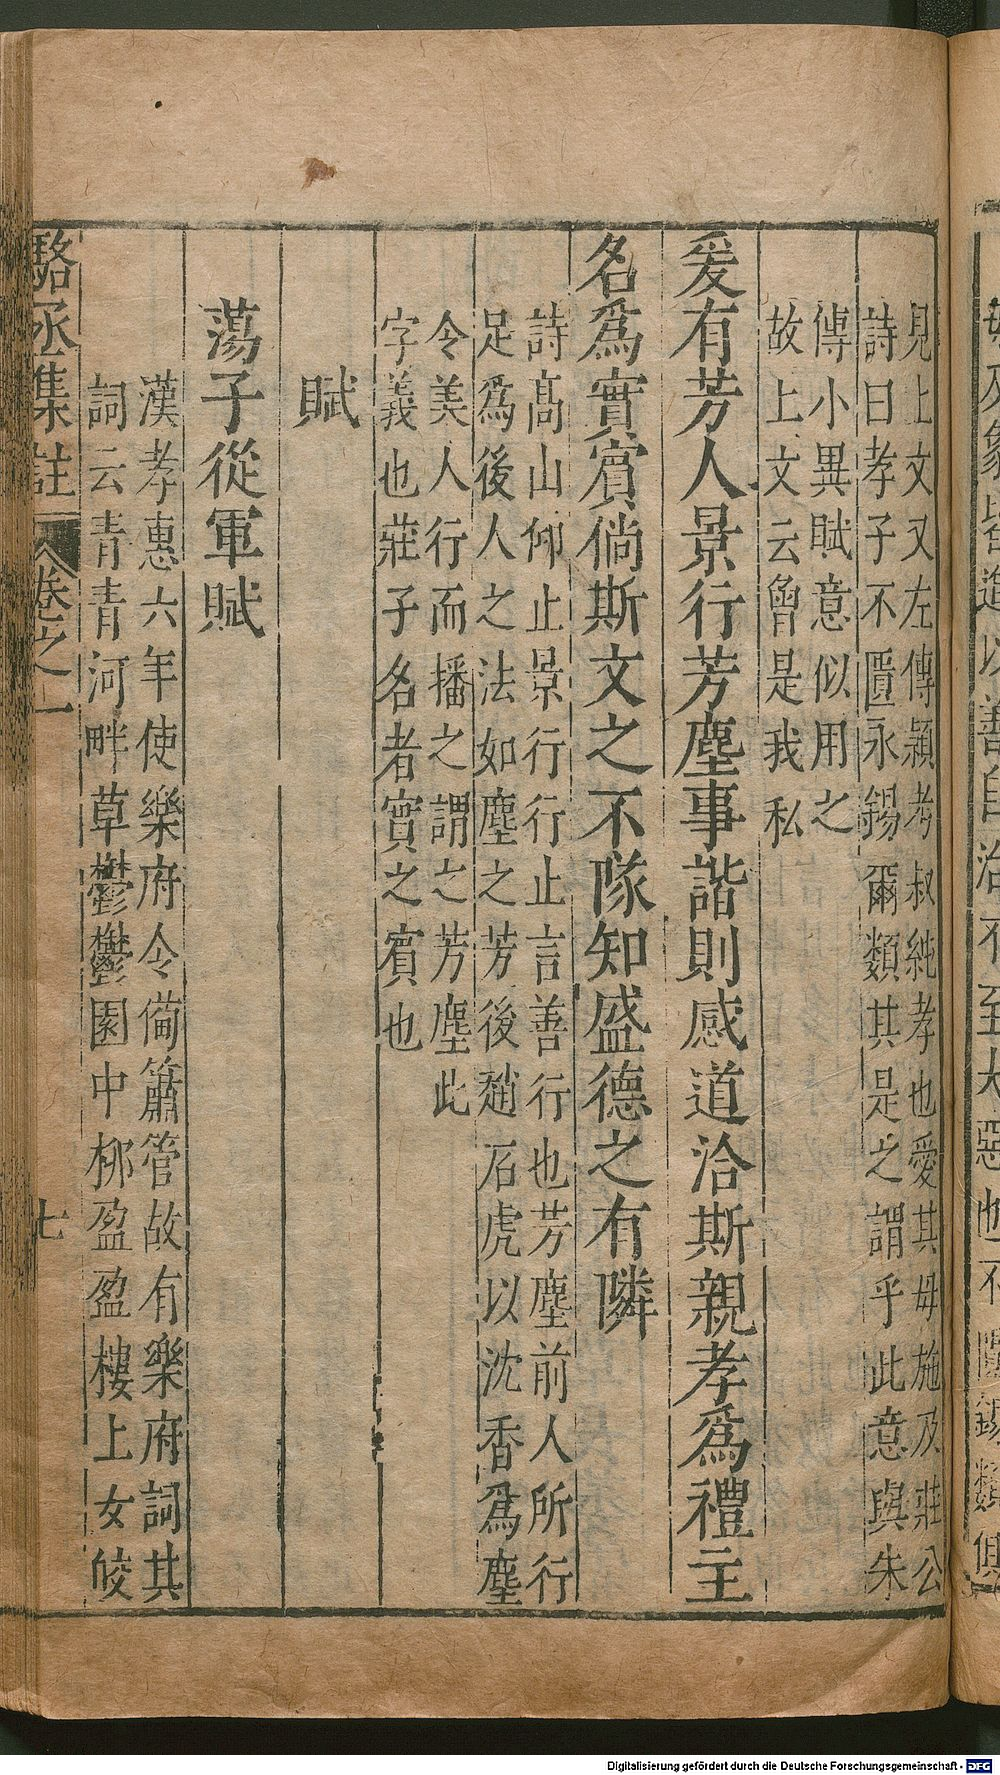 見上文又左傳潁考叔純孝也愛其母施及莊公
詩曰孝子不匱永錫爾類其是之謂乎此意與朱
傳小異賦意似用之
故上文云曾是我私
爰有芳人景行芳塵事諧則感道洽斯親孝爲禮主
名爲實賓倘斯文之不隊知盛德之有隣
詩髙山仰止景行行止言善行也芳塵前人所行
足爲後人之法如塵之芳後趙石虎以沈香爲塵
令美人行而播之謂之芳塵此
字義也莊子名者實之賓也
賦
蕩子從軍賦
漢孝惠六年使樂府令備簫管故有樂府詞其
詞云青青河畔草鬱鬱園中栁盈盈樓上女皎
駱丞集註 卷之一 七
Digitalisierung gefördert durch die Deutsche Forschungsgemeinschaft - DFG